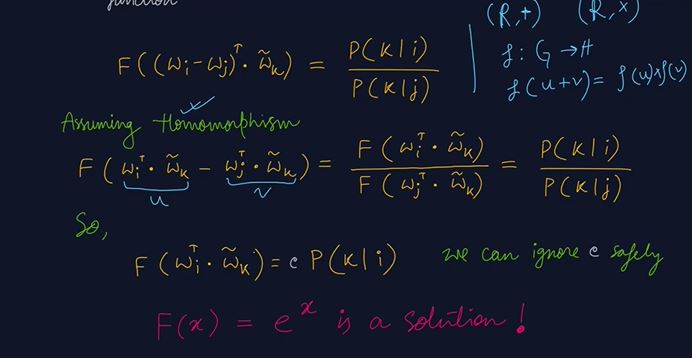 function
(R,+) (R,×)
F((ωi-ωj)ᵀ·ω̃k) = P(k|i) / P(k|j)
f: G → H
f(u+v) = f(u)×f(v)
Assuming Homomorphism
F(ωiᵀ·ω̃k - ωjᵀ·ω̃k) = F(ωiᵀ·ω̃k) / F(ωjᵀ·ω̃k) = P(k|i) / P(k|j)
u v
So,
F(ωiᵀ·ω̃k) = c P(k|i) We can ignore c safely
F(x) = eˣ is a solution!